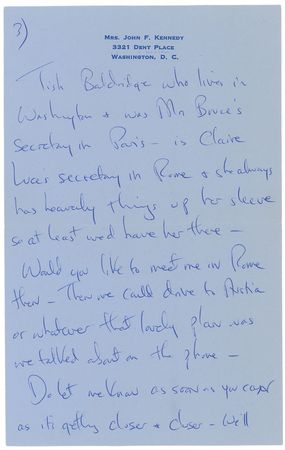 3)
MRS. JOHN F. KENNEDY
3321 DENT PLACE
WASHINGTON, D. C.
Tish Baldridge who lives in
Washington & was Mr Bruce's
Secretary in Paris – is Claire
Luce's secretary in Rome & she always
has heavenly things up her sleeve
so at least we'd have her there –
Would you like to meet me in Rome
then – Then we could drive to Austria
or whatever that lovely plan was
we talked about on the phone –
Do let me know as soon as you can
as it's getting closer & closer – We'll